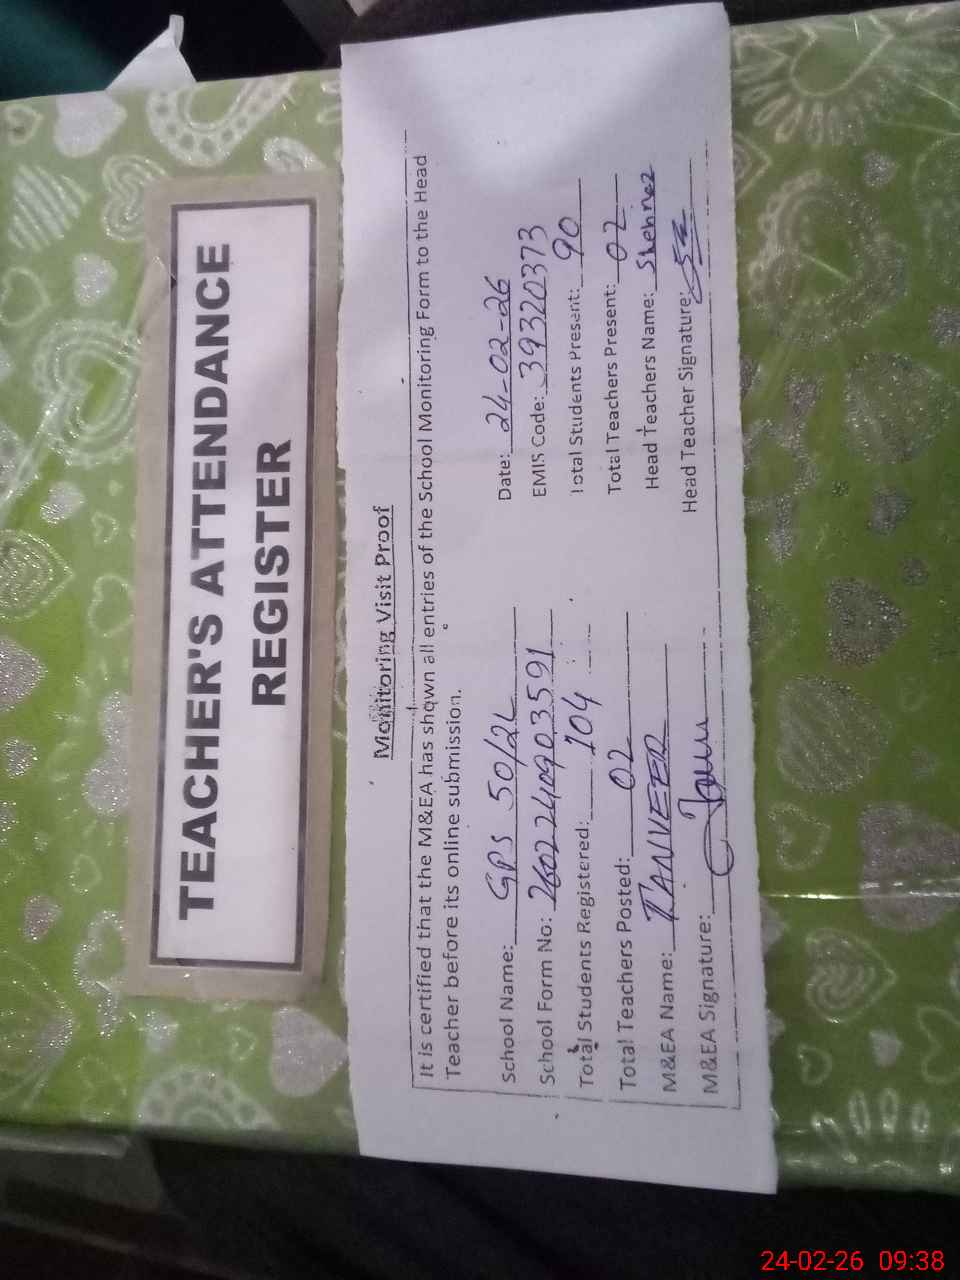 TEACHER'S ATTENDANCE
REGISTER
Monitoring Visit Proof
It is certified that the M&EA has shown all entries of the School Monitoring Form to the Head
Teacher before its online submission.
School Name: GPS 50/2L Date: 24-02-26
School Form No: 260224090 3591 EMIS Code: 39320373
Total Students Registered: 104 Total Students Present: 90
Total Teachers Posted: 02 Total Teachers Present: 02
M&EA Name: TANVEER Head Teachers Name: Shehnaz
M&EA Signature: Head Teacher Signature:
24-02-26 09:38